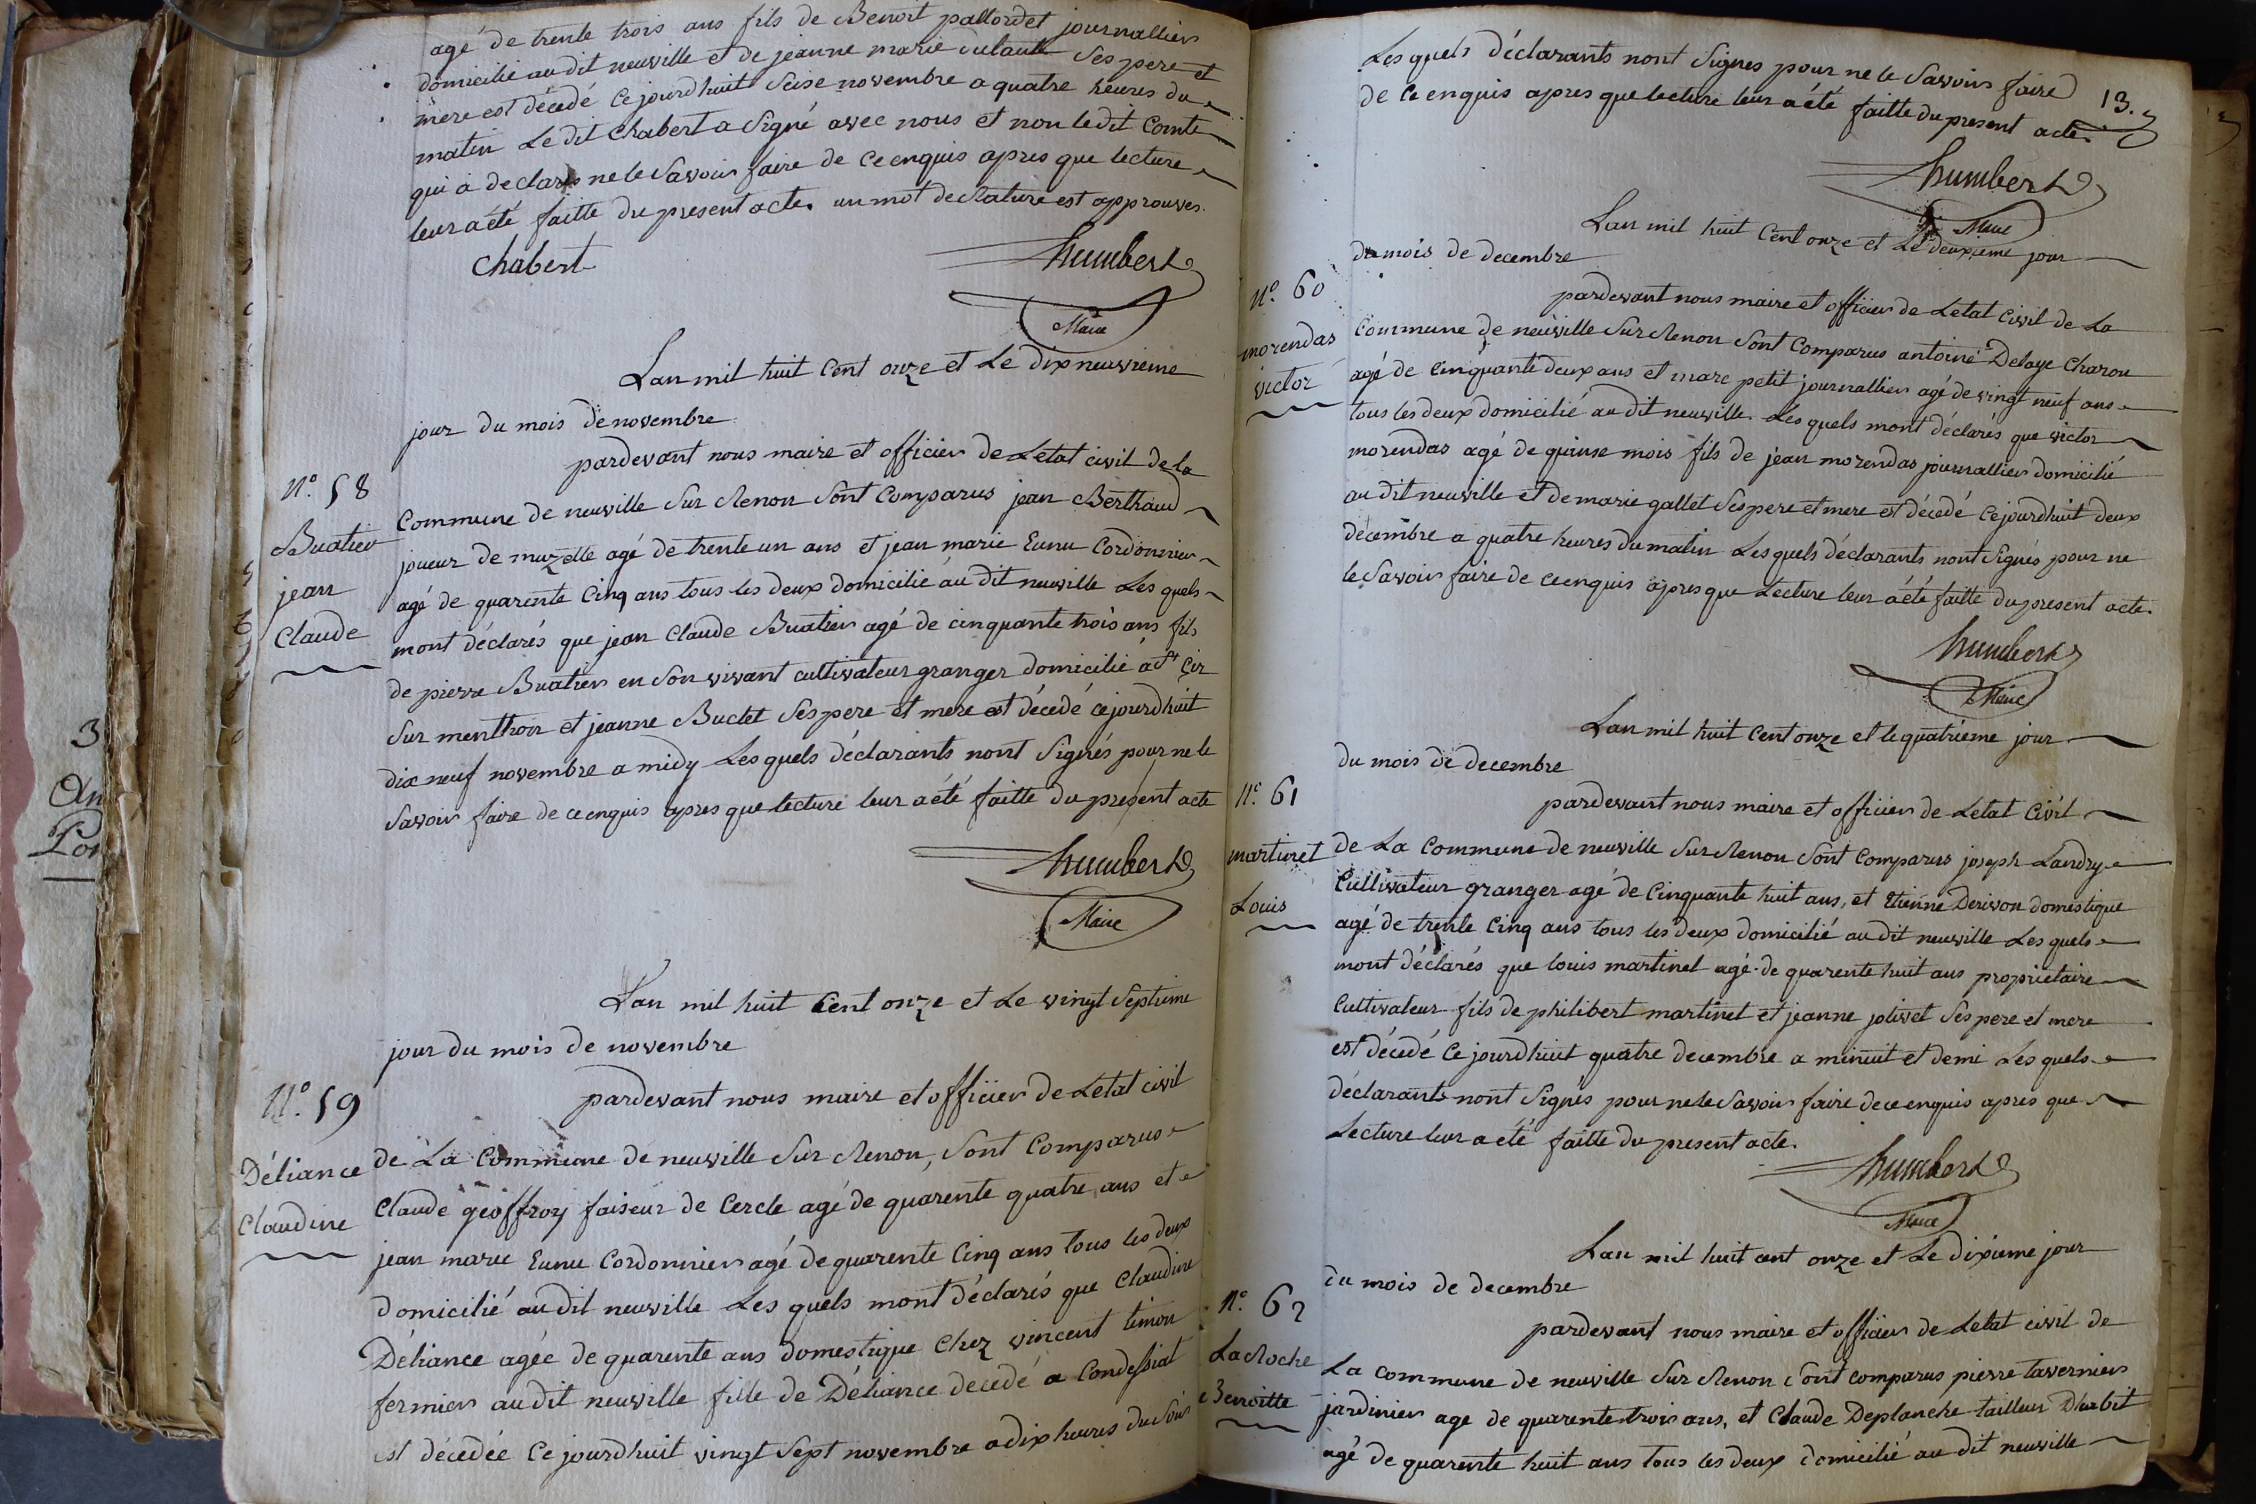 agé de trente trois ans fils de Benoit pallordet journallier
domicilié au dit neuville et de jeanne marie dulault Ses pere et
mere est décedé Ce jourdhuit Seise novembre a quatre heures du
matin Le dit Chabert a Signé avec nous et non le dit Comte
qui a declaré ne le Savoir faire de Ce enquis apres que lecture
leur a été faitte du present acte. un mot de Rature est approuvés.
Chabert humbert
Maire
Lan mil huit Cent onze et Le Dix neuvieme
jour du mois de novembre
pardevant nous maire et officier de Letat civil de la
N.º 58
Commune de neuville Sur Renon Sont Comparus jean Berthaud
Buatier
joueur de muzette agé de trente un ans et jean marie Eunu Cordonnier
jean
agé de quarente Cinq ans tous les deux domicilié au dit neuville Les quels
Claude
mont déclarés que jean Claude Buatier agé de cinquante trois ans fils
de pierre Buatier en Son vivant cultivateur granger domicilié a St Cir
Sur menthon et jeanne Buclet Ses pere et mere est décedé ce jourdhuit
dix neuf novembre a midy Les quels déclarants nont Signés pour ne le
Savoir faire de ce enquis apres que lecture leur a été faitte du present acte
humbert
Maire
Lan mil huit Cent onze et Le vingt Septieme
jour du mois de novembre
pardevant nous maire et officier de Letat civil
N.º 59
de La Commune de neuville Sur Renon, Sont Comparus
Déliance
Claude geoffroy faiseur de Cercle agé de quarente quatre ans et
Claudine
jean marie Eunu Cordonnier agé de quarente Cinq ans tous les deux
domicilié au dit neuville Les quels mont déclarés que Claudine
Déliance agée de quarente ans domestique Chez vincent timon
fermier au dit neuville fille de Déliance decedé a Condessiat
est décedée Ce jourdhuit vingt Sept novembre a dix heures du Soir
13.
Les quels déclarants nont Signes pour ne le Savoir faire
de Ce enquis apres que lecture leur a été faitte du present acte.
humbert
Maire
Lan mil huit Cent onze et Le deuxieme jour
du mois de decembre
N.º 60
pardevant nous maire et officier de Letat Civil de La
morendas
Commune de neuville Sur Renon Sont Comparus antoine Delaye Charon
victor
agé de Cinquante deux ans et marc petit journallier agé de vingt neuf ans
tous les deux domicilié au dit neuville. Les quels mont déclarés que victor
morendas agé de quinse mois fils de jean morendas journallier domicilié
au dit neuville et de marie gallet Ses pere et mere est décedé Ce jourdhuit deux
décembre a quatre heures du matin Les quels déclarants nont Signés pour ne
le Savoir faire de ce enquis apres que Lecture leur a été faitte du present acte.
humbert
Maire
Lan mil huit Cent onze et le quatrieme jour
du mois de decembre
N.º 61
pardevant nous maire et officier de Letat Civil
martinet
de La Commune de neuville Sur Renon Sont Comparus joseph Landry
Cultivateur granger agé de Cinquante huit ans, et Etienne Derivon domestique
Louis
agé de trente Cinq ans tous les deux domicilié au dit neuville Les quels
mont déclarés que louis martinet agé de quarente huit ans proprietaire
Cultivateur fils de philibert martinet et jeanne jolivet Ses pere et mere
est décedé Ce jourdhuit quatre decembre a minuit et demi Les quels
déclarants nont Signés pour ne le Savoir faire de ce enquis apres que
Lecture leur a eté faitte du present acte.
humbert
Maire
Lan mil huit cent onze et Le dixieme jour
du mois de decembre
N.º 62
pardevant nous maire et officier de Letat civil de
LaRoche
La commune de neuville Sur Renon Sont comparus pierre tavernier
Benoitte
jardinier age de quarente trois ans, et Claude Deplanche tailleur D'habit
agé de quarente huit ans tous les deux domicilié au dit neuville